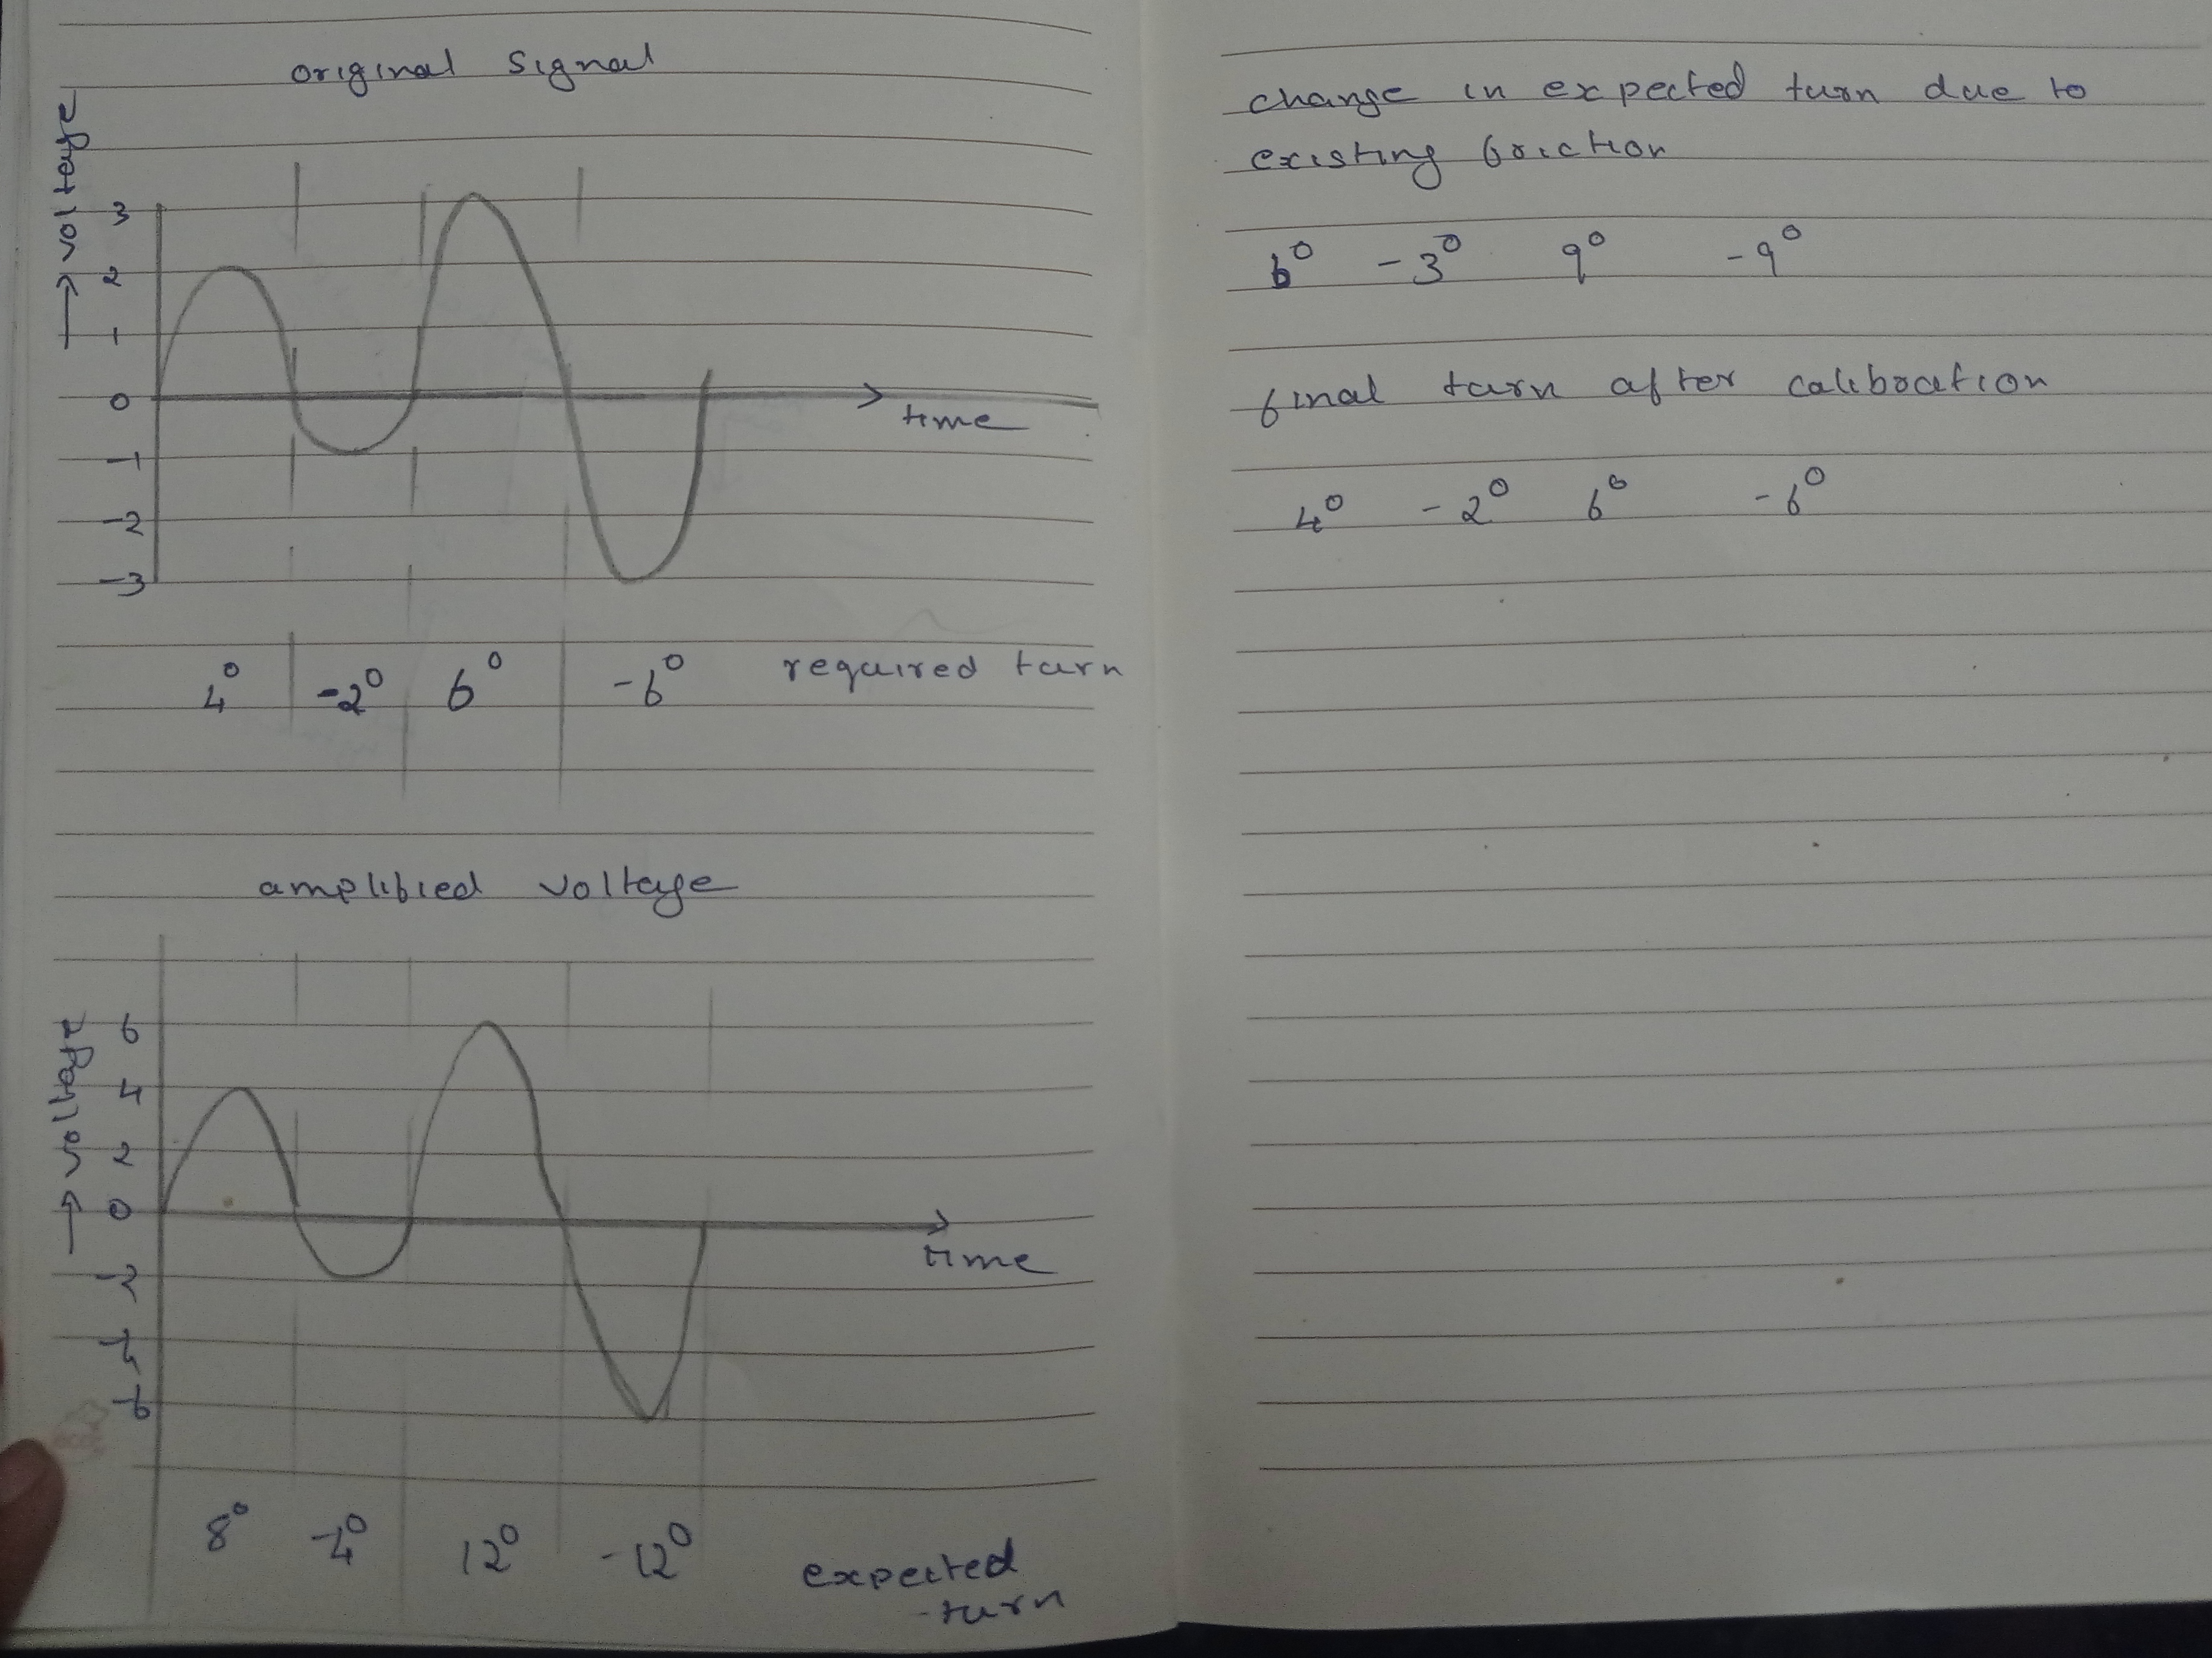 original signal
→ voltage
3
2
1
0
-1
-2
-3
time
4° -2° 6° -6° required turn
amplified voltage
→ voltage
6
4
2
0
-2
-4
-6
time
8° -4° 12° -12° expected
turn
change in expected turn due to
existing friction
6° -3° 9° -9°
final turn after calibration
4° -2° 6° -6°